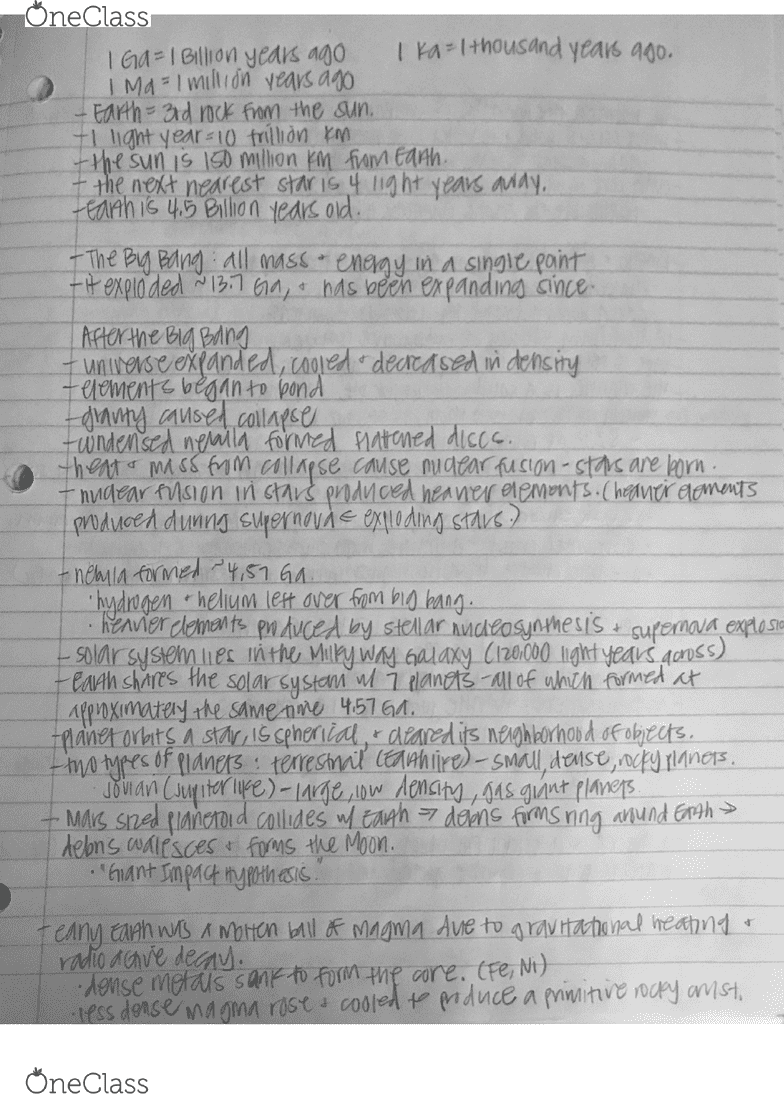 OneClass
1 Ga = 1 Billion years ago 1 Ka = 1 thousand years ago.
1 Ma = 1 million years ago
- Earth = 3rd rock from the sun.
- 1 light year = 10 trillion km
- the sun is 150 million km from Earth.
- the next nearest star is 4 light years away.
- Earth is 4.5 Billion years old.
- The Big Bang : all mass + energy in a single point
- it exploded ~13.7 Ga, + has been expanding since.
After the Big Bang
- universe expanded, cooled + decreased in density
- elements began to bond
- gravity caused collapse
- condensed nebula formed flatened discs.
- heat + mass from collapse cause nuclear fusion - stars are born.
- nuclear fusion in stars produced heavier elements. (heavier elements
produced during supernova ← exploding stars.)
- nebula formed ~4.57 Ga.
· hydrogen + helium left over from big bang.
· heavier elements produced by stellar nucleosynthesis + supernova explosio
- solar system lies in the Milky Way Galaxy (120,000 light years across)
- Earth shares the solar system w/ 7 planets - all of which formed at
approximately the same time 4.57 Ga.
- planet orbits a star, is spherical, + cleared its neighborhood of objects.
- two types of planets : terrestrial (Earth like) - small, dense, rocky planets.
Jovian (Jupiter like) - large, low density, gas giant planets.
- Mars sized planetoid collides w/ Earth → debris forms ring around Earth →
debris coalesces + forms the Moon.
· "Giant Impact Hypothesis."
- early Earth was a molten ball of magma due to gravitational heating +
radioactive decay.
· dense metals sank to form the core. (Fe, Ni)
· less dense magma rose + cooled to produce a primitive rocky crust.
OneClass